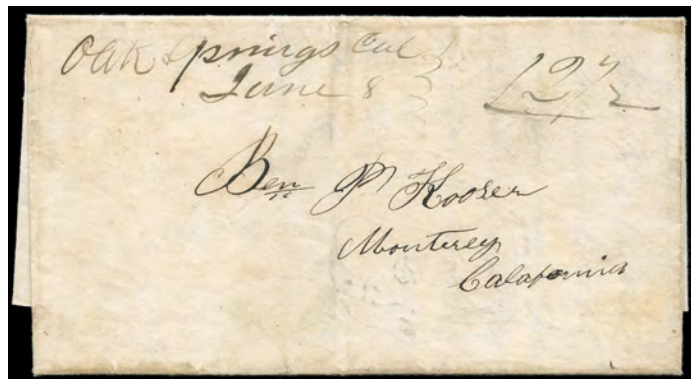 Oak Springs Cal
June 8
12 1/2
Ben P Kooser
Monterey
Calafornia